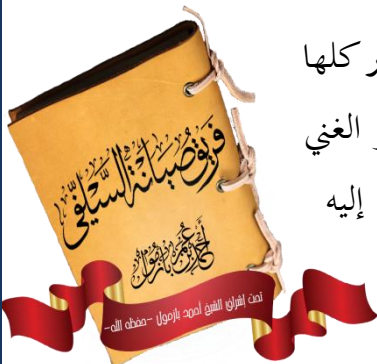 ر كلها
الغني
إليه
فريق صيانة السلفي
أحمد بن عمر بازمول
تحت إشراف الشيخ أحمد بازمول -حفظه الله-